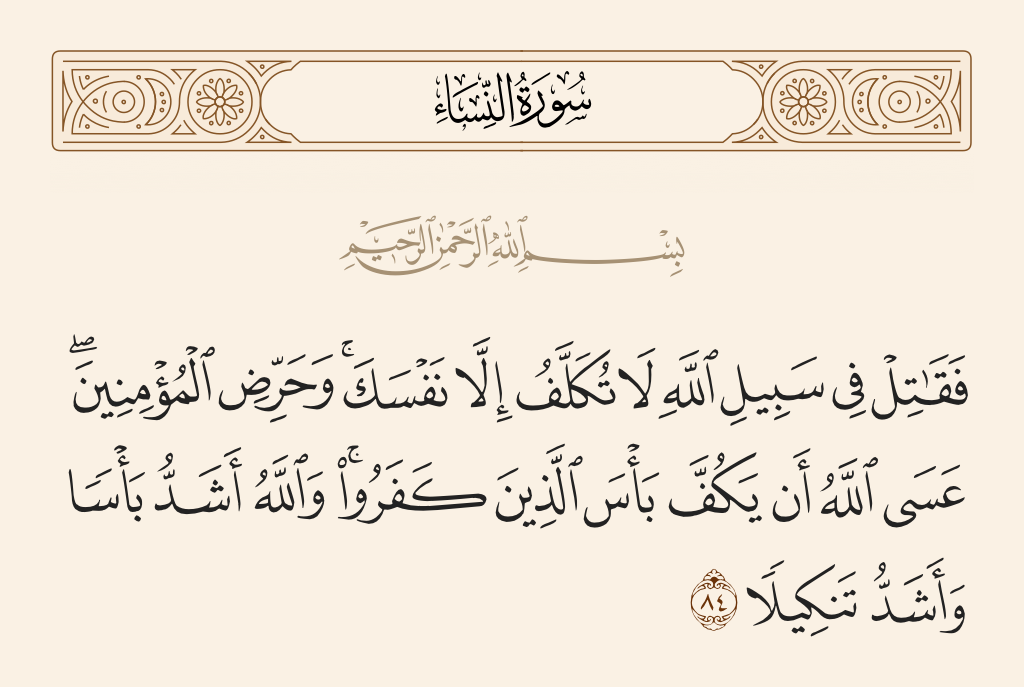 سُورَةُ النِّسَاءِ
بِسْمِ ٱللَّهِ ٱلرَّحْمَٰنِ ٱلرَّحِيمِ
فَقَٰتِلْ فِى سَبِيلِ ٱللَّهِ لَا تُكَلَّفُ إِلَّا نَفْسَكَ ۚ وَحَرِّضِ ٱلْمُؤْمِنِينَ ۖ
عَسَى ٱللَّهُ أَن يَكُفَّ بَأْسَ ٱلَّذِينَ كَفَرُوا۟ ۚ وَٱللَّهُ أَشَدُّ بَأْسًا
وَأَشَدُّ تَنكِيلًا ٨٤